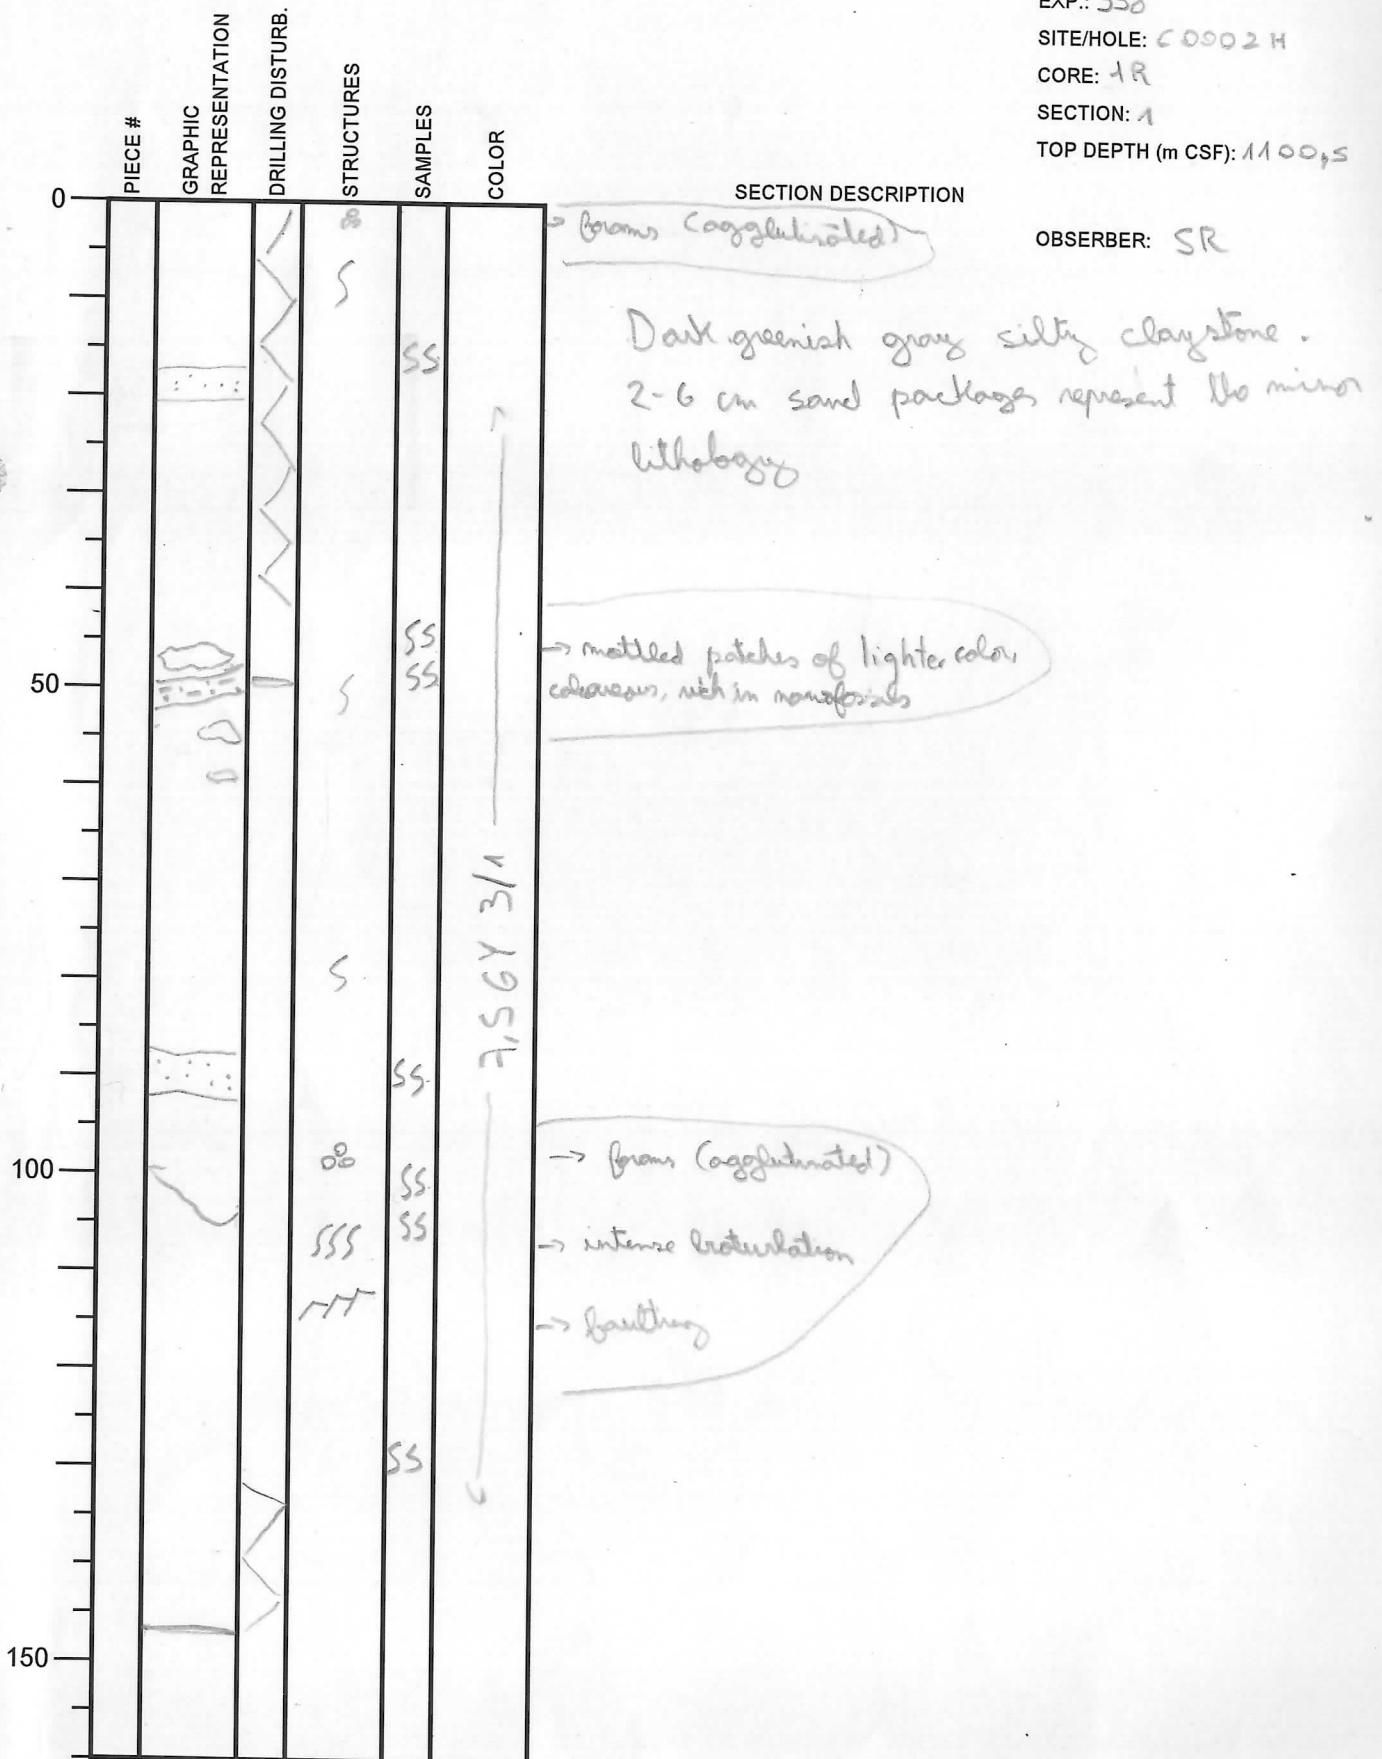 EXP.: 338
SITE/HOLE: C0002H
CORE: 1R
SECTION: 1
TOP DEPTH (m CSF): 1100,5
OBSERBER: SR
PIECE #
GRAPHIC
REPRESENTATION
DRILLING DISTURB.
STRUCTURES
SAMPLES
COLOR
SECTION DESCRIPTION
0
→ forams (agglutinated)
Dark greenish gray silty claystone.
2-6 cm sand packages represent the minor
lithology
SS
SS
→ mottled patches of lighter colour
50
SS
calcareous, rich in nanofossils
7,5GY 3/1
SS
100
→ forams (agglutinated)
SS
SS
→ intense bioturbation
→ faulting
SS
150